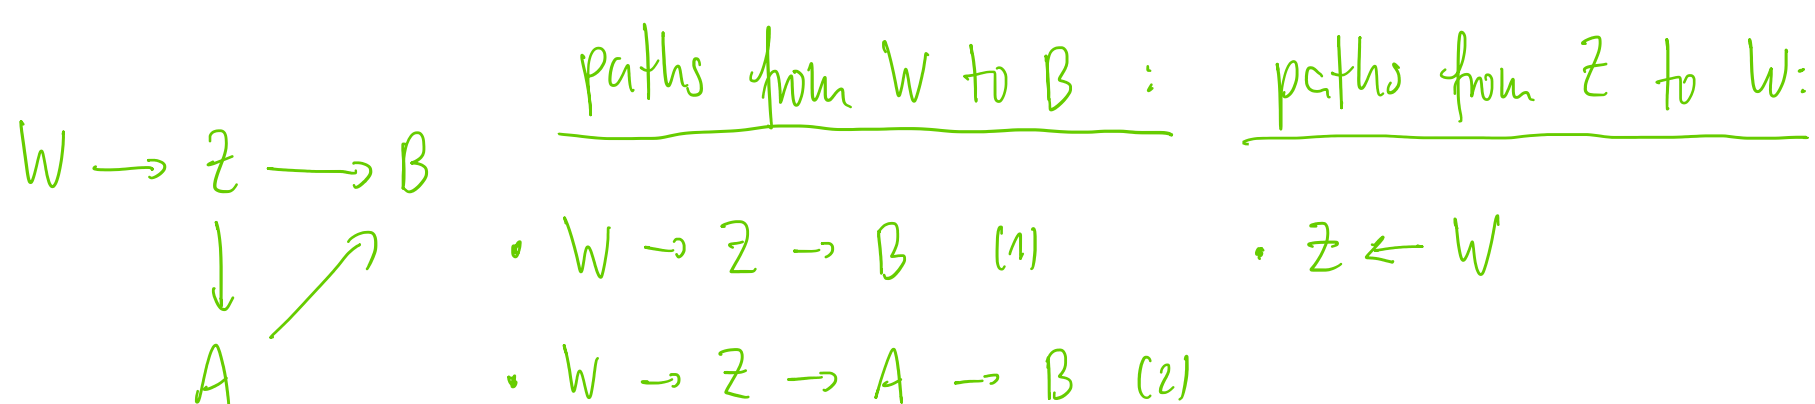 W → Z → B
A
paths from W to B :
• W → Z → B (1)
• W → Z → A → B (2)
paths from Z to W:
• Z ← W